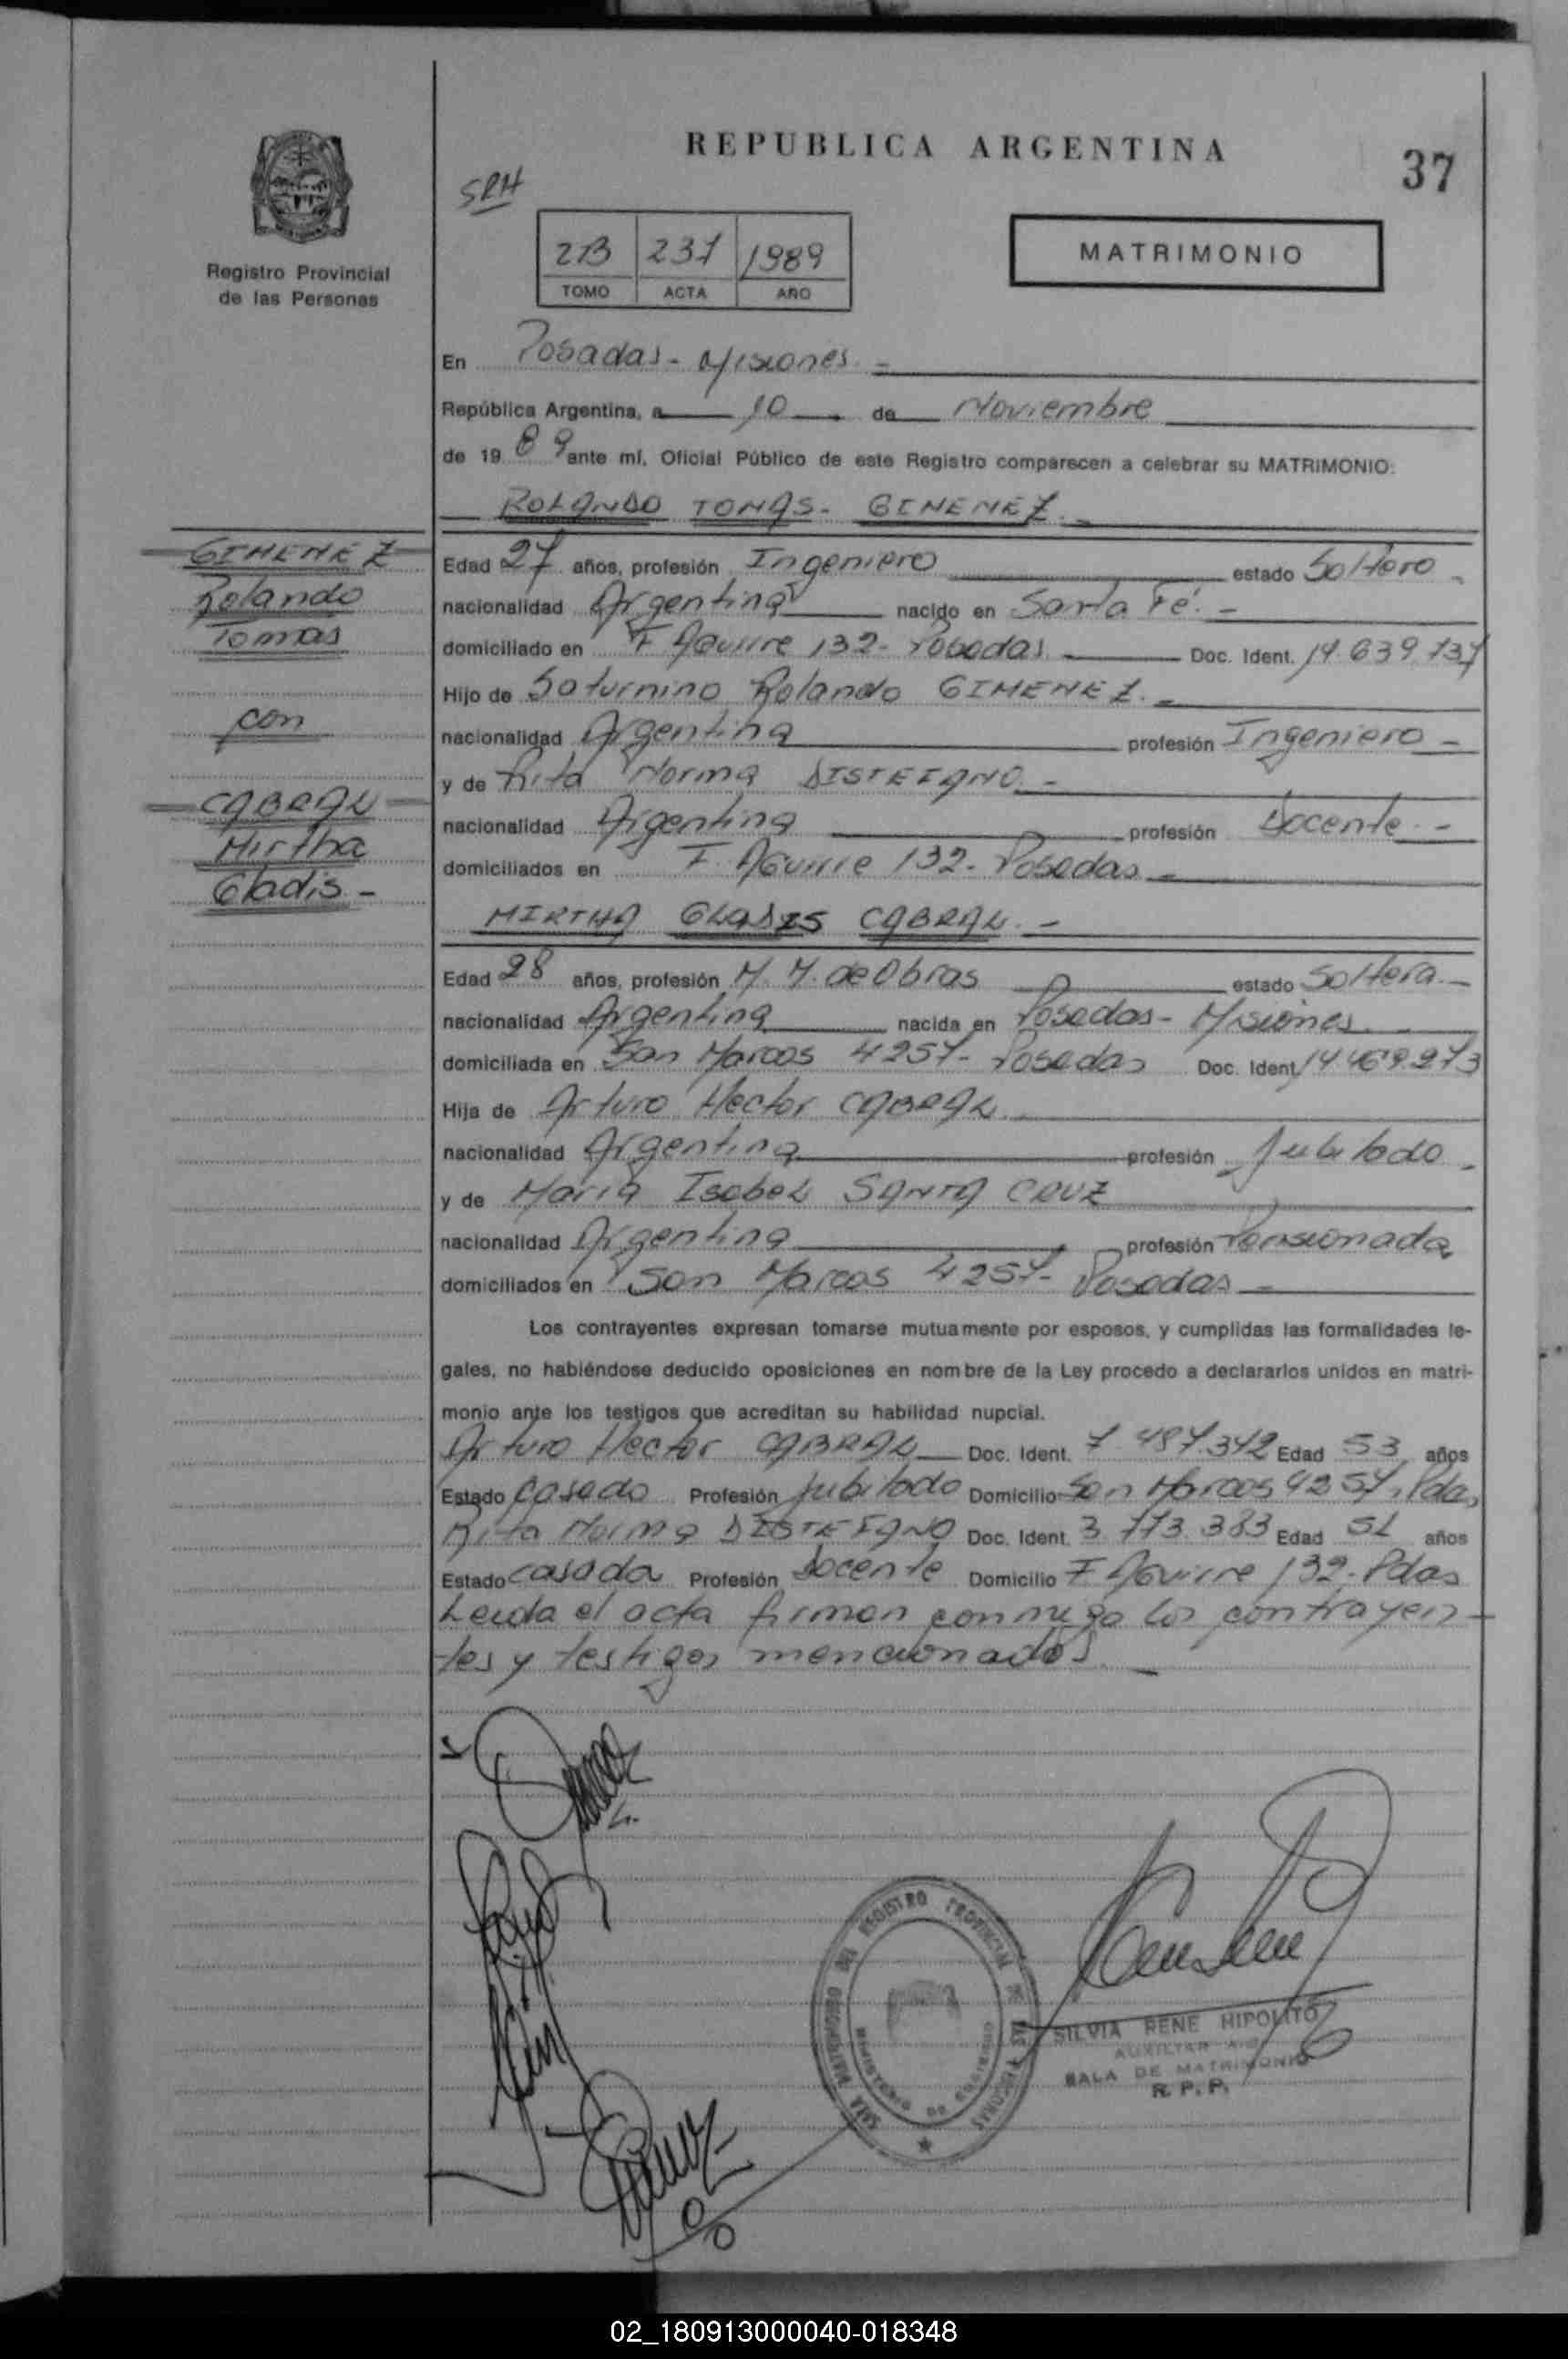 REPUBLICA ARGENTINA
37
SRH
Registro Provincial
de las Personas
2B 237 1989
TOMO ACTA AÑO
MATRIMONIO
En Posadas - Misiones. -
República Argentina, a 10 de Noviembre
de 19 89 ante mí, Oficial Público de este Registro comparecen a celebrar su MATRIMONIO:
ROLANDO TOMAS - GIMENEZ. -
GIMENEZ
Rolando
Tomas
con
CABRAL
Mirtha
Gladis -
Edad 27 años, profesión Ingeniero estado Soltero -
nacionalidad Argentina nacido en Santa Fé. -
domiciliado en F Aguirre 132 - Posadas Doc. Ident. 14.639.737
Hijo de Saturnino Rolando GIMENEZ. -
nacionalidad Argentina profesión Ingeniero -
y de Rita Norma DISTEFANO. -
nacionalidad Argentina profesión Docente -
domiciliados en F. Aguirre 132 - Posadas -
MIRTHA GLADIS CABRAL. -
Edad 28 años, profesión M. M. de Obras estado Soltera. -
nacionalidad Argentina nacida en Posadas - Misiones. -
domiciliada en San Marcos 4257 - Posadas Doc. Ident. 14.469.273
Hija de Arturo Hector CABRAL
nacionalidad Argentina profesión Jubilado -
y de Maria Isabel SANTA CRUZ
nacionalidad Argentina profesión Pensionada
domiciliados en San Marcos 4257 - Posadas -
Los contrayentes expresan tomarse mutuamente por esposos, y cumplidas las formalidades le-
gales, no habiéndose deducido oposiciones en nombre de la Ley procedo a declararlos unidos en matri-
monio ante los testigos que acreditan su habilidad nupcial.
Arturo Hector CABRAL Doc. Ident. 7.487.342 Edad 53 años
Estado casado Profesión Jubilado Domicilio San Marcos 4257, Pdas,
Rita Norma DISTEFANO Doc. Ident. 3.773.383 Edad 51 años
Estado casada Profesión Docente Domicilio F Aguirre 132 - Pdas
Leida el acta firman conmigo los contrayen-
tes y testigos mencionados. -
SALA MATRIMONIO DEL REGISTRO PROVINCIAL DE LAS PERSONAS
MINISTERIO DE GOBIERNO
SILVIA RENE HIPOLITO
AUXILIAR
SALA DE MATRIMONIO
R. P. P.
02_180913000040-018348